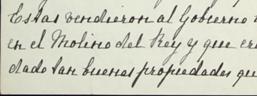 Estas vendieron al Gobierno
en el Molino del Rey y que
dado tan buenas propiedades que